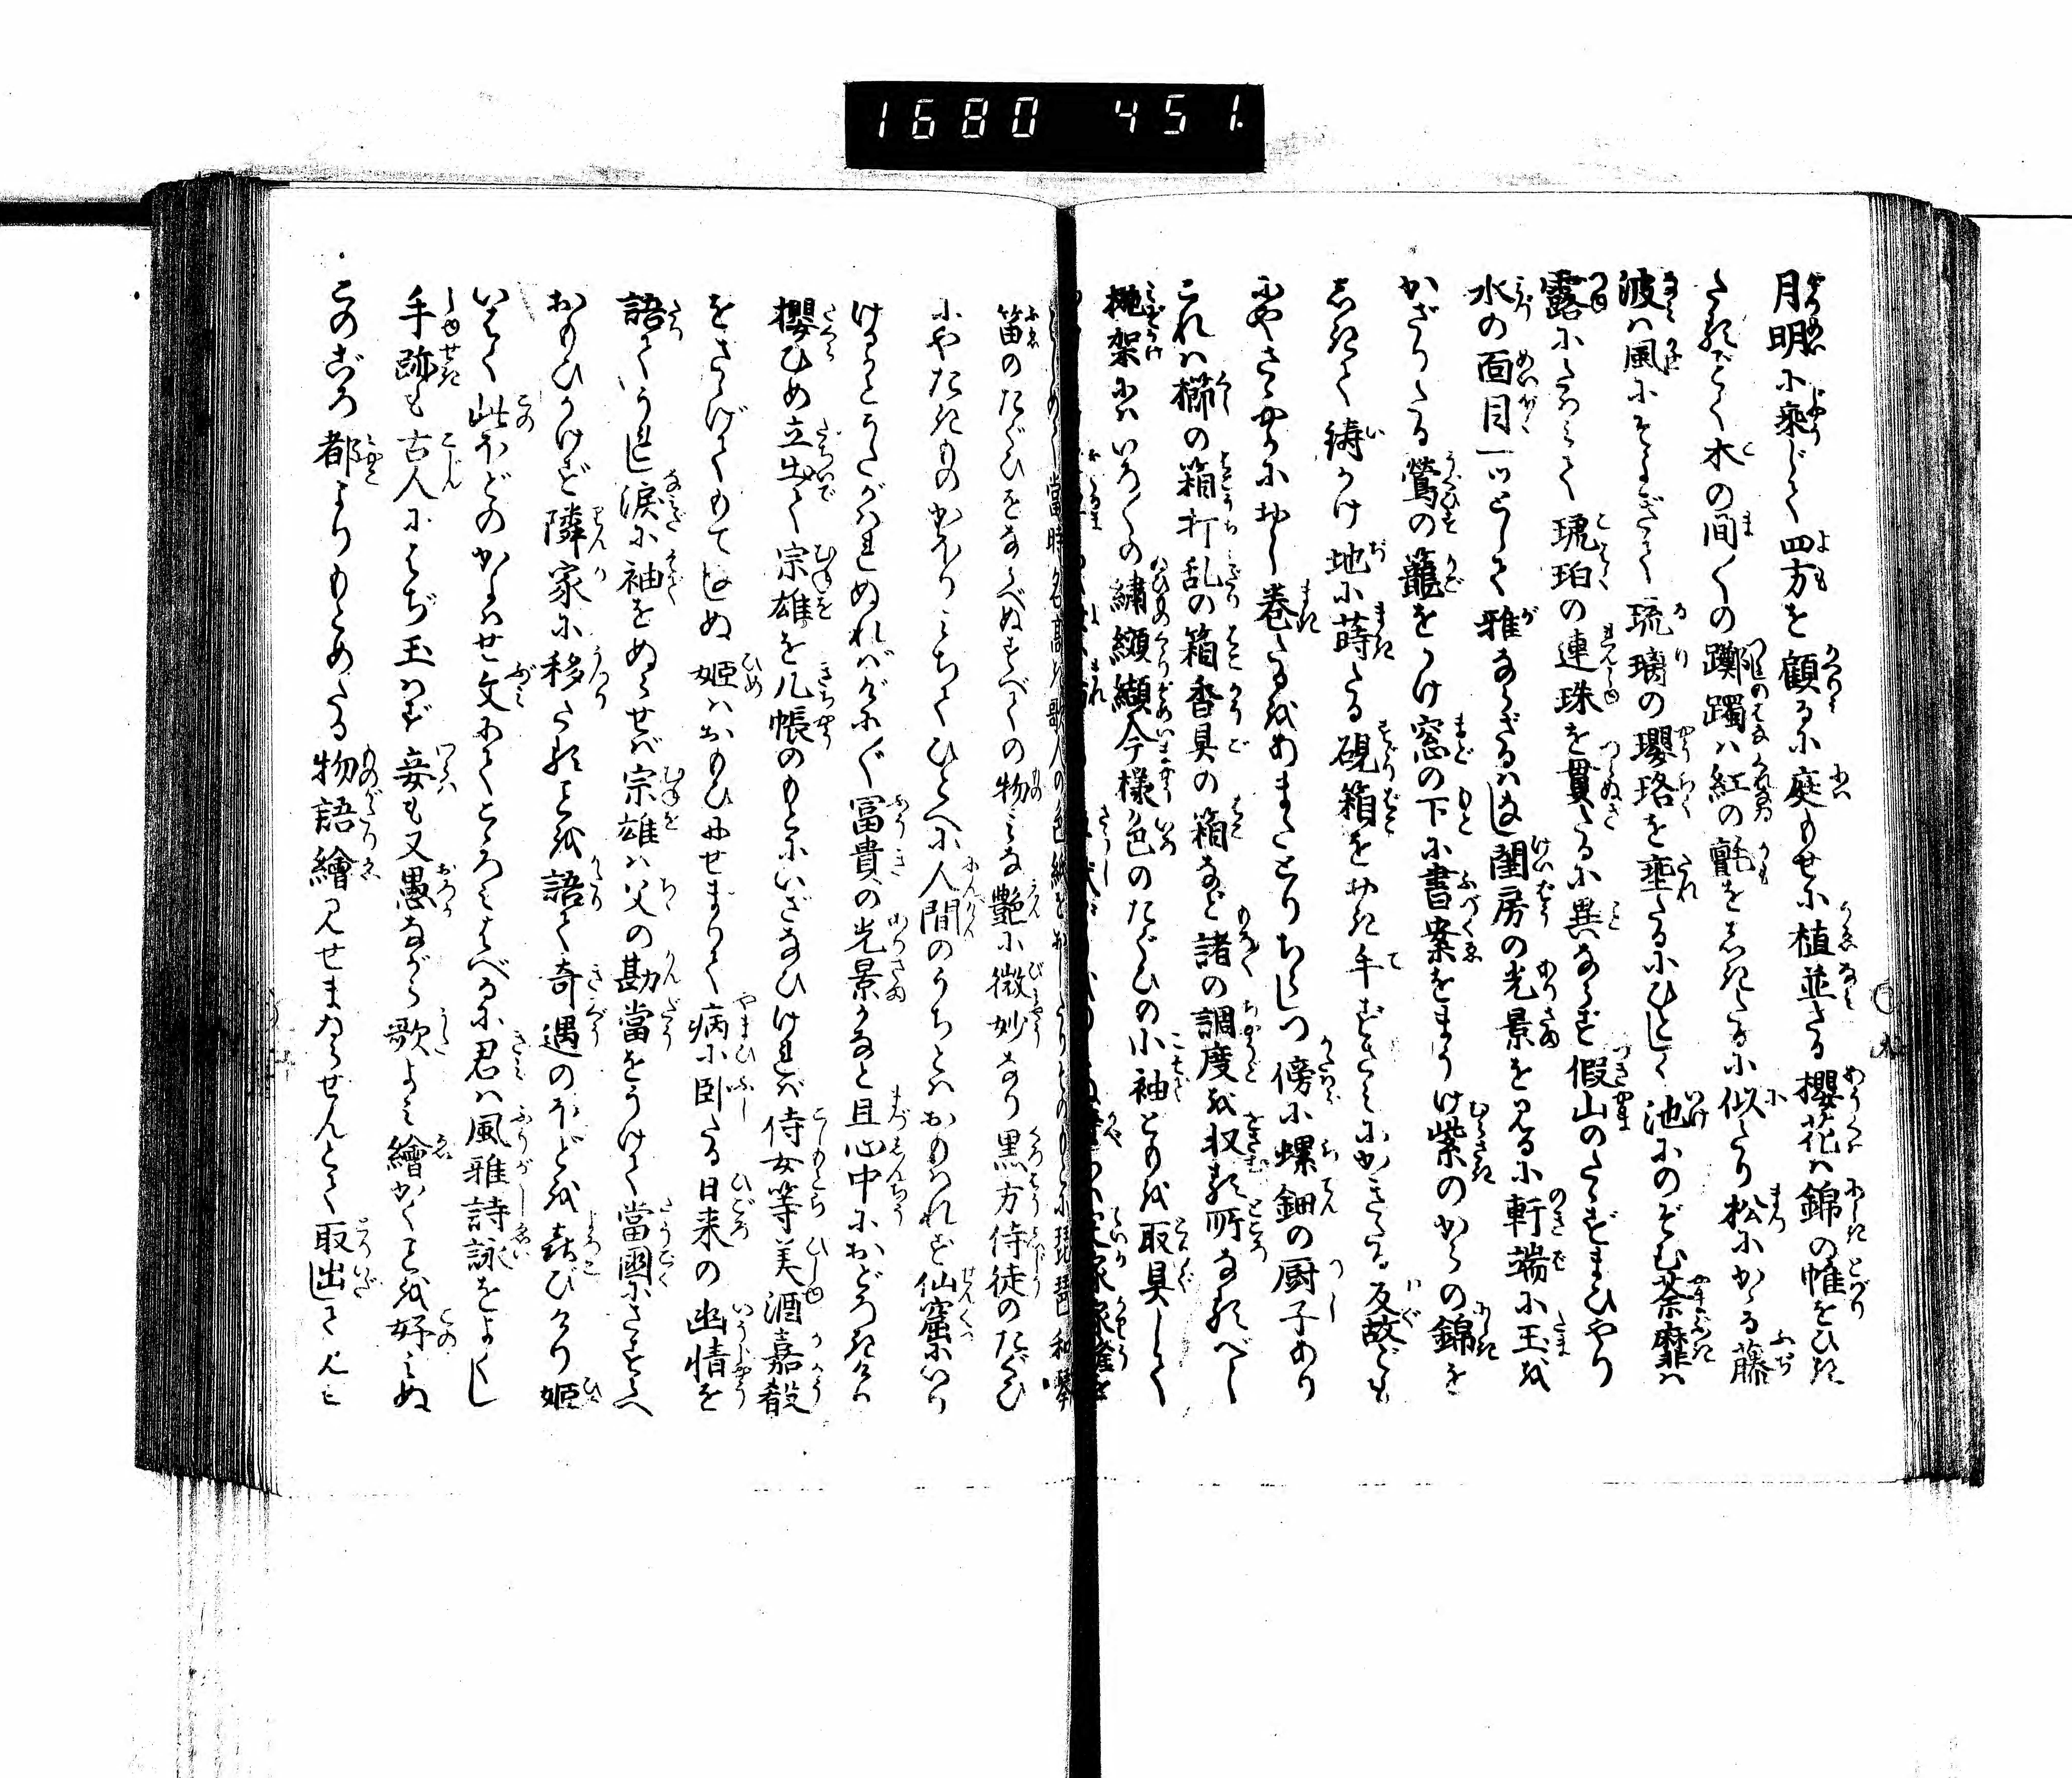 1680 451.
月明に乗じて四方を顧るに庭もせに植並たる櫻花は錦の帷をひき
たるごとく木の間〳〵の躑躅は紅の氈をしきたるに似たり松にかゝる藤
波は風にそよぎて琉璃の瓔珞を埀たるにひとしく池にのぞむ荼䕷は
露にたわみて琥珀の連珠を貫たるに異ならず假山のたゝずまひやり
水の面目一ツとして雅ならざるはなし閨房の光景を見るに軒端に玉を
かざりたる鶯の籠をかけ窓の下に書案をまうけ紫のからの錦を
しきて鋳かけ地に蒔たる硯箱をおき手ずさみにかきたる反故ども
にやさゝやかにおし巻たるをあまたとりちらしつ傍に螺鈿の厨子あり
これは櫛の箱打乱の箱香具の箱など諸の調度を収る所なるべし
衣架にはいろ〳〵の繍纐纈今様色のたぐひの小袖どもを取具して
當時名高き歌人の色紙をおしたり
笛のたぐひをならべぬすべての物みな艶に微妙なり黒方侍徒のたぐひ
にやたきものかをりみちてひとへに人間のうちとはおもはれず仙窟にいり
けるかとうたがはれぬればげに〳〵冨貴の光景かなと且心中におどろきけり
櫻ひめ立出て宗雄を几帳のもとにいざなひければ侍女等美酒嘉殽
をさゝげてもてなしぬ姫はおもひにせまりて病に臥たる日来の幽情を
語ていうれし涙に袖をぬらせば宗雄は父の勘當をうけて當國にさすらへ
おもひかけず隣家に移たることを語て奇遇のほどを喜びけり姫
いはく此ほどのかよはせ文にてこゝろみはべるに君は風雅詩詠をよくし
手跡も古人にはぢ玉はず妾も又愚ながら歌よみ繪かくことを好みぬ
このごろ都よりもとめたる物語繪見せまゐらせんとて取出て見